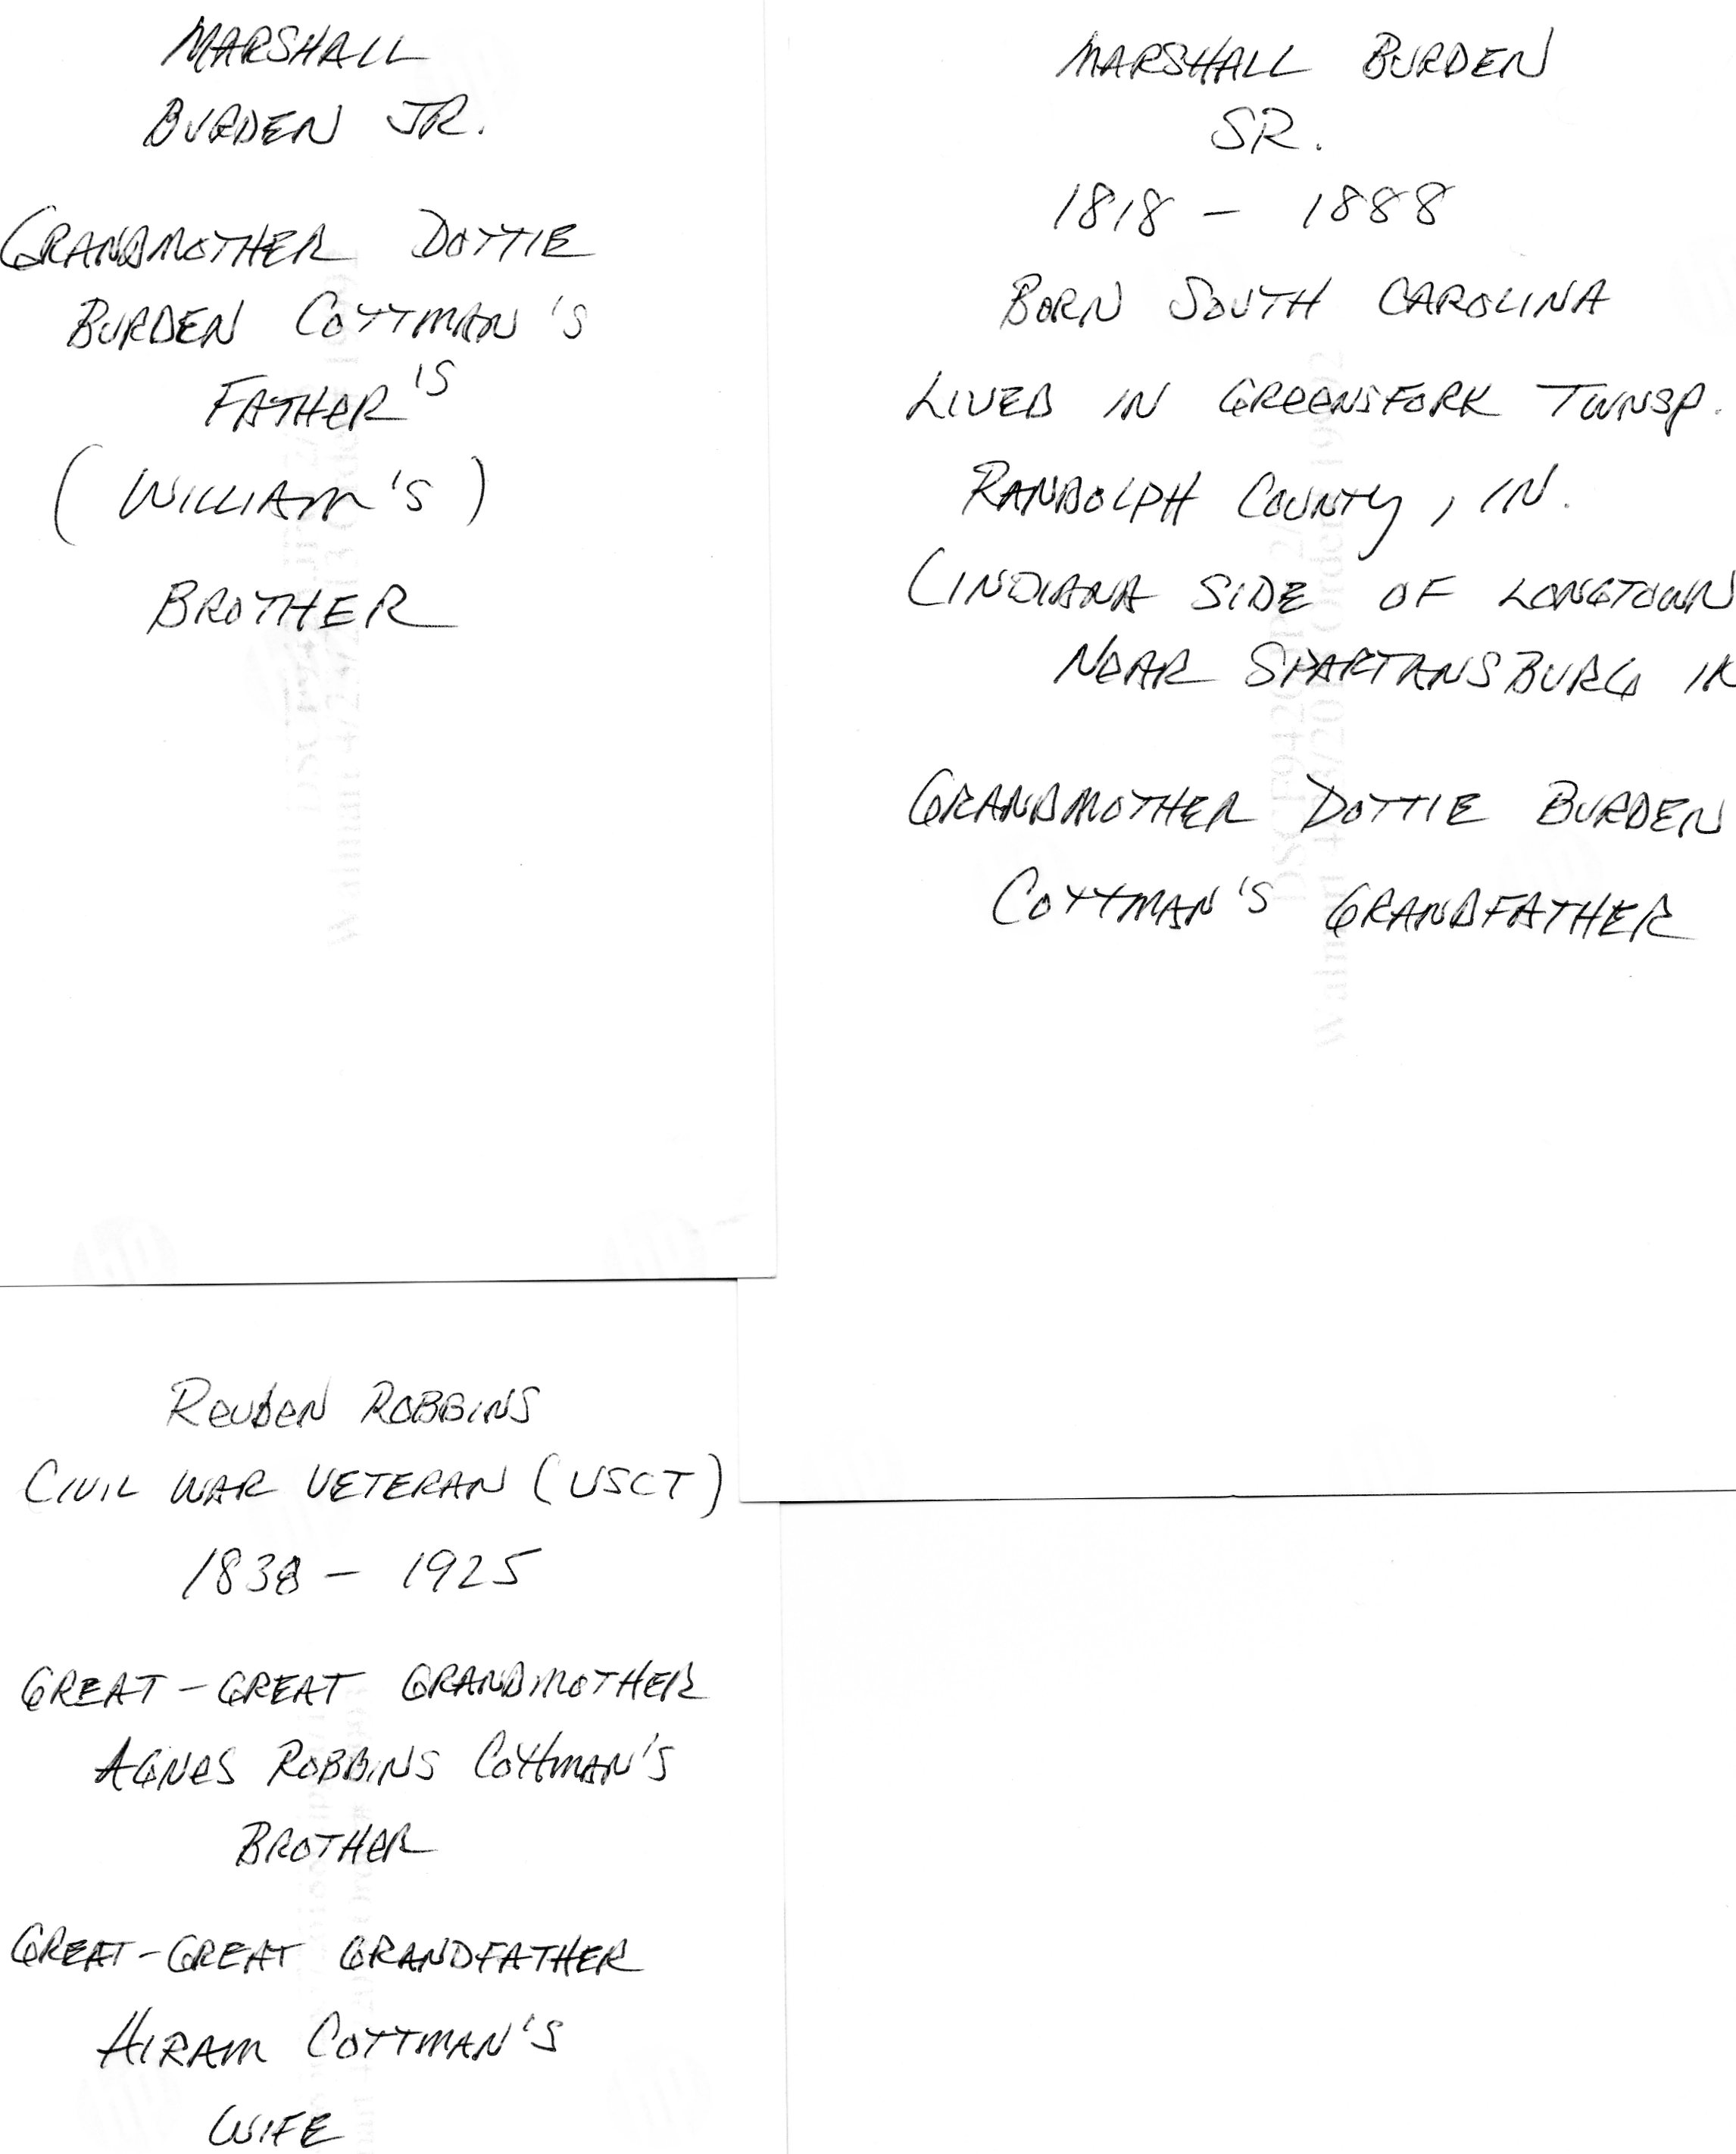 MARSHALL
BURDEN JR.
GRANDMOTHER DOTTIE
BURDEN COTTMAN'S
FATHER'S
(WILLIAM'S)
BROTHER
MARSHALL BURDEN
SR.
1818 - 1888
BORN SOUTH CAROLINA
LIVED IN GREENSFORK TWNSP.
RANDOLPH COUNTY, IN.
(INDIANA SIDE OF LONGTOWN
NEAR SPARTANSBURG IN
GRANDMOTHER DOTTIE BURDEN
COTTMAN'S GRANDFATHER
REUBEN ROBBINS
CIVIL WAR VETERAN (USCT)
1838 - 1925
GREAT-GREAT GRANDMOTHER
AGNES ROBBINS COTTMAN'S
BROTHER
GREAT-GREAT GRANDFATHER
HIRAM COTTMAN'S
WIFE